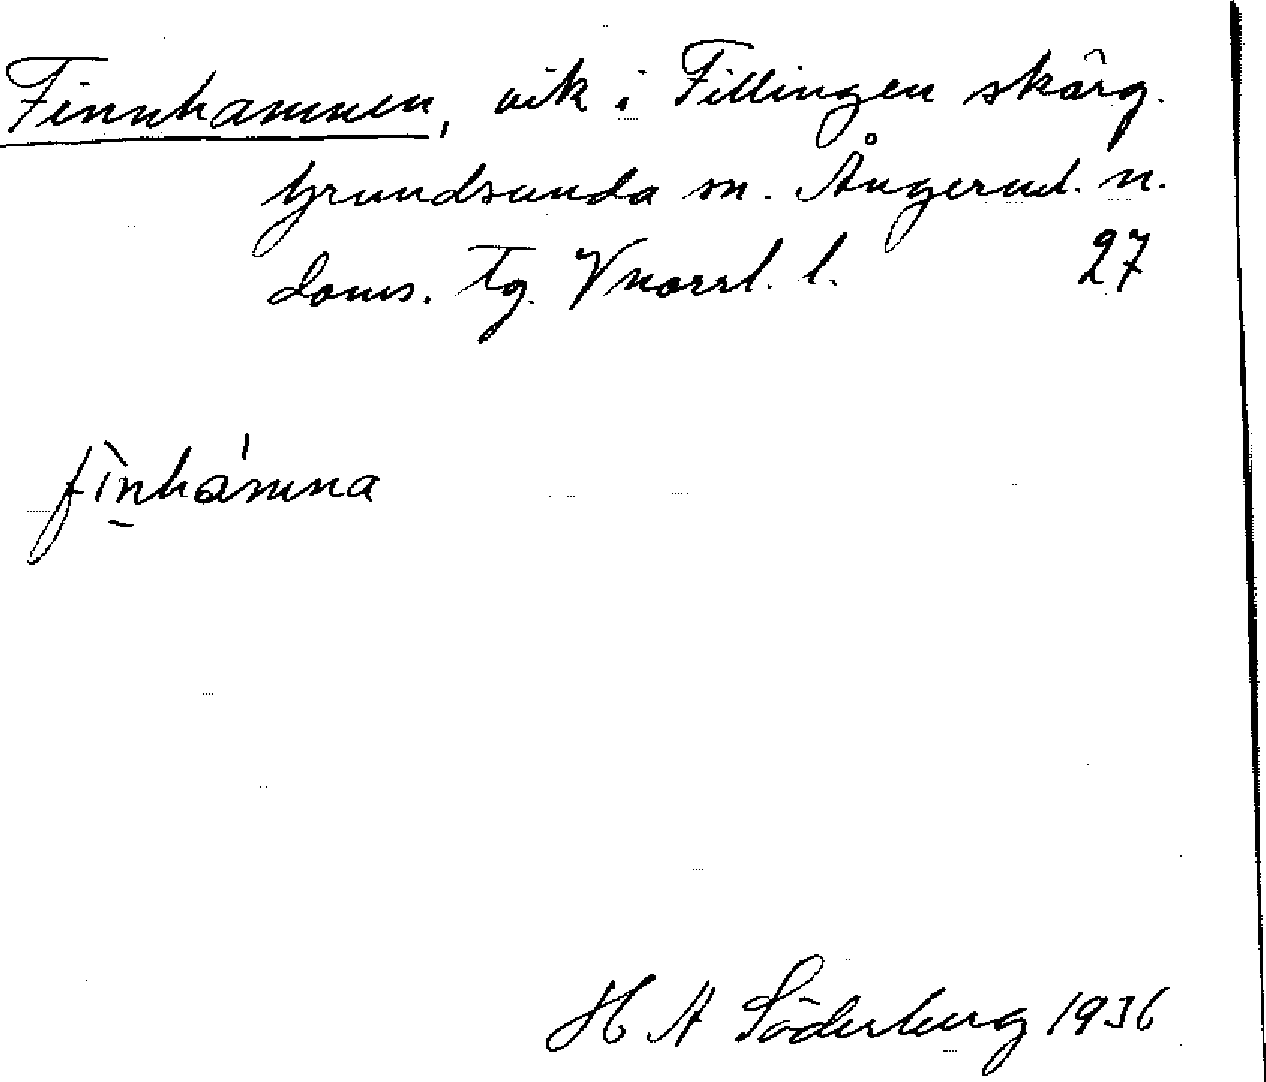 Finnhamnen, vik i Fillingen skärg.
Grundsunda sn. Ångerml. n.
doms. Tg. Vnorrl. l. 27
fìnhámna
H A Söderberg 1936